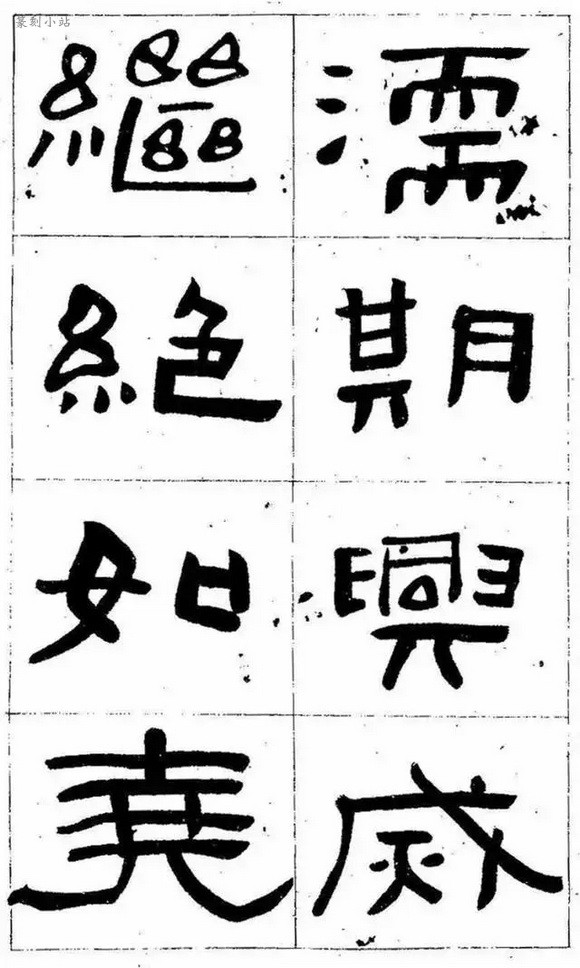 濡期興烕
繼絕如堯
篆刻小站